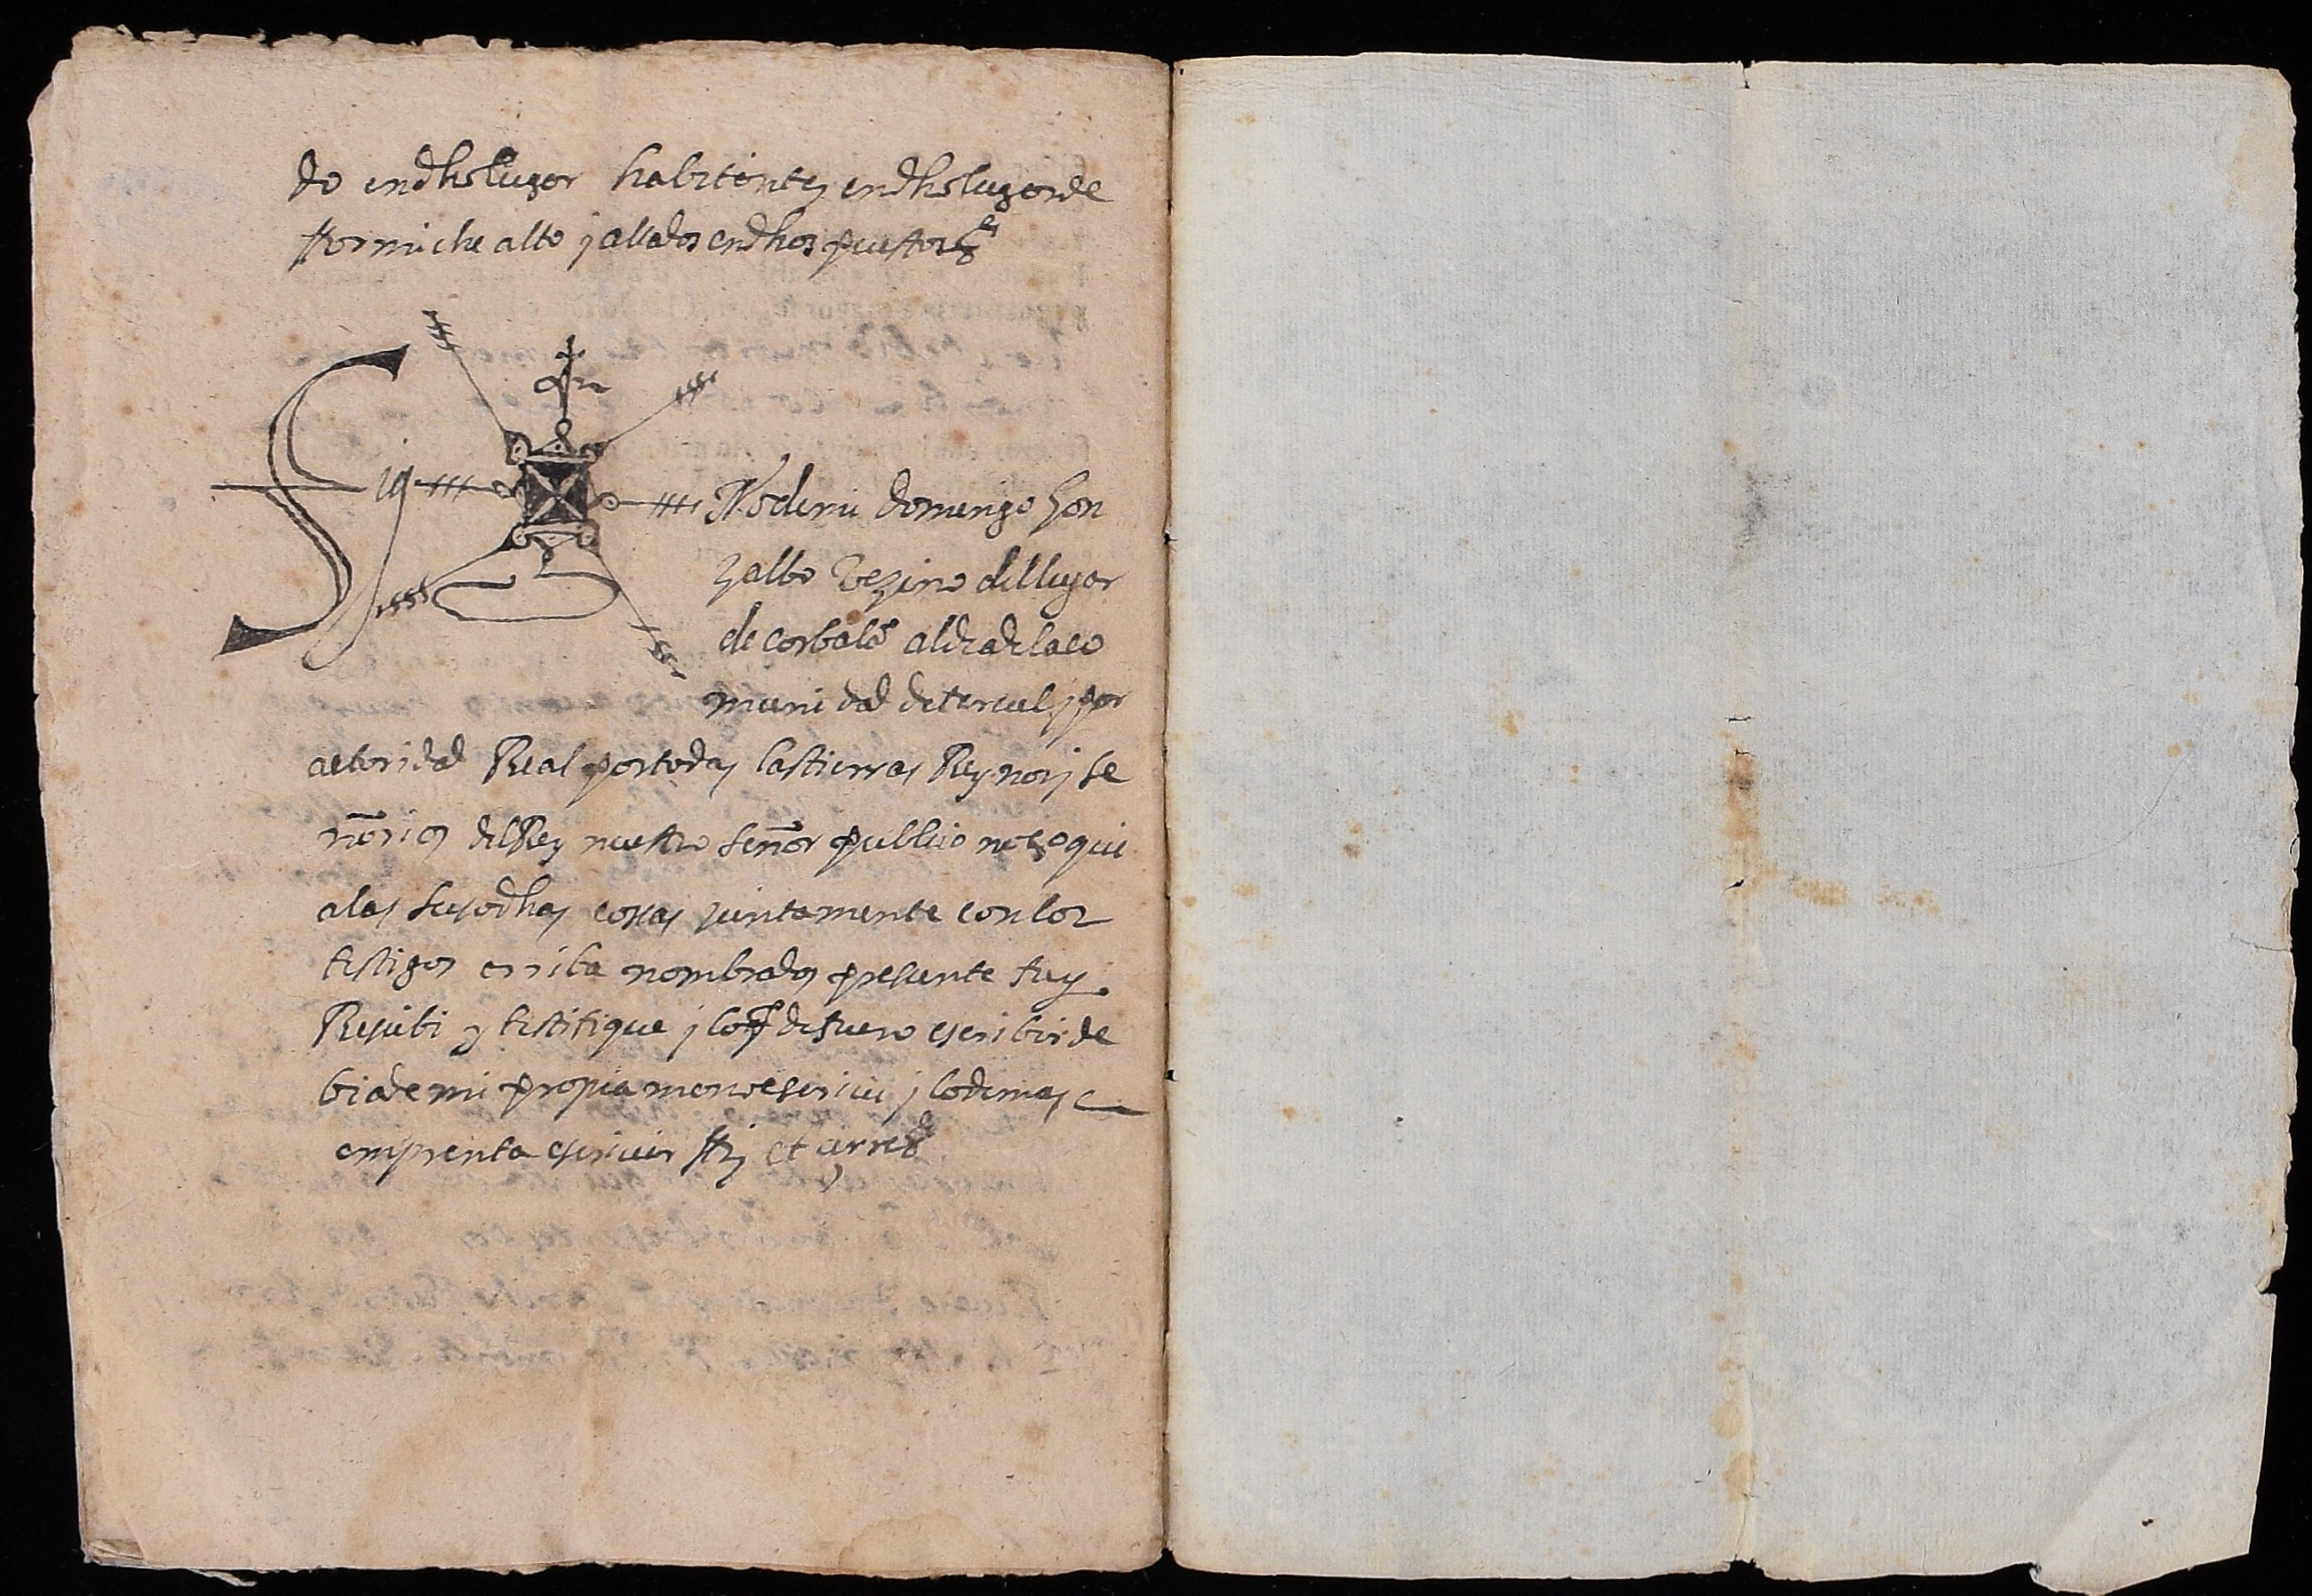 do en dho lugar habitantes en dho lugar de
formiche alto j allados en dhos puestos
Sig No de mi domingo Gon
zalbo Vezino del lugar
de corbalã aldea de la co
munidad de teruel j por
actoridad Real por todas las tierras Reynos j se
ñorios del Rey nuestro señor publico notº que
a las susodhas cosas juntamente con los
testigos arriba nombrados presente fuy
Resçibi y testifique j lo q de fuero escribir de
bia de mi propia mano escriui j lo demas e
emprenta escriuir fiz et çerre